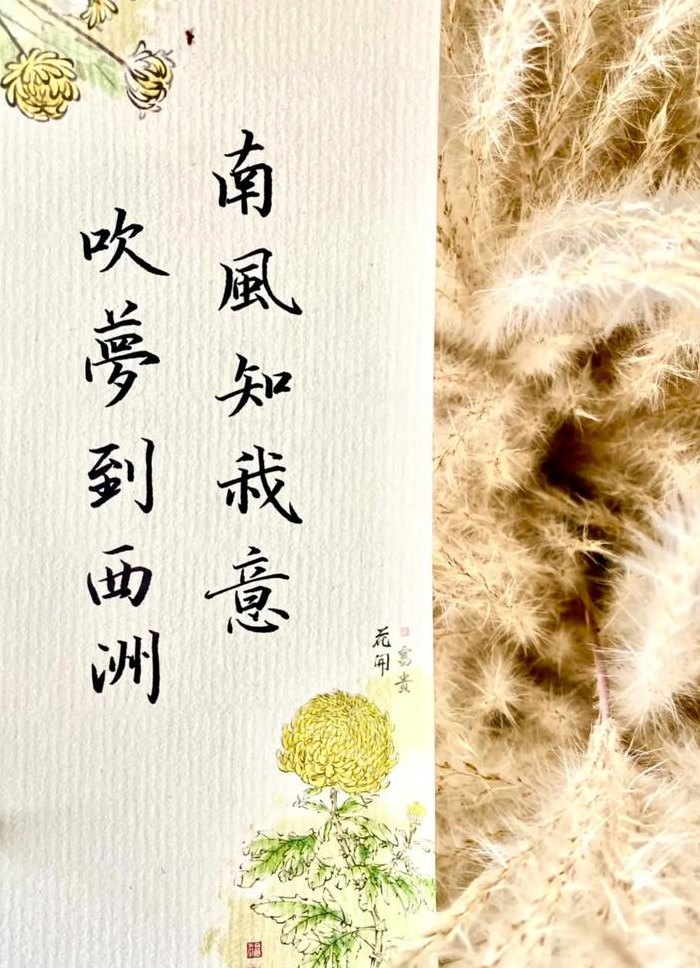 南風知我意
吹夢到西洲
花開
富貴